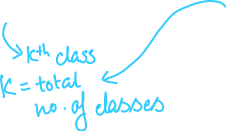 kth class
K = total
no. of classes